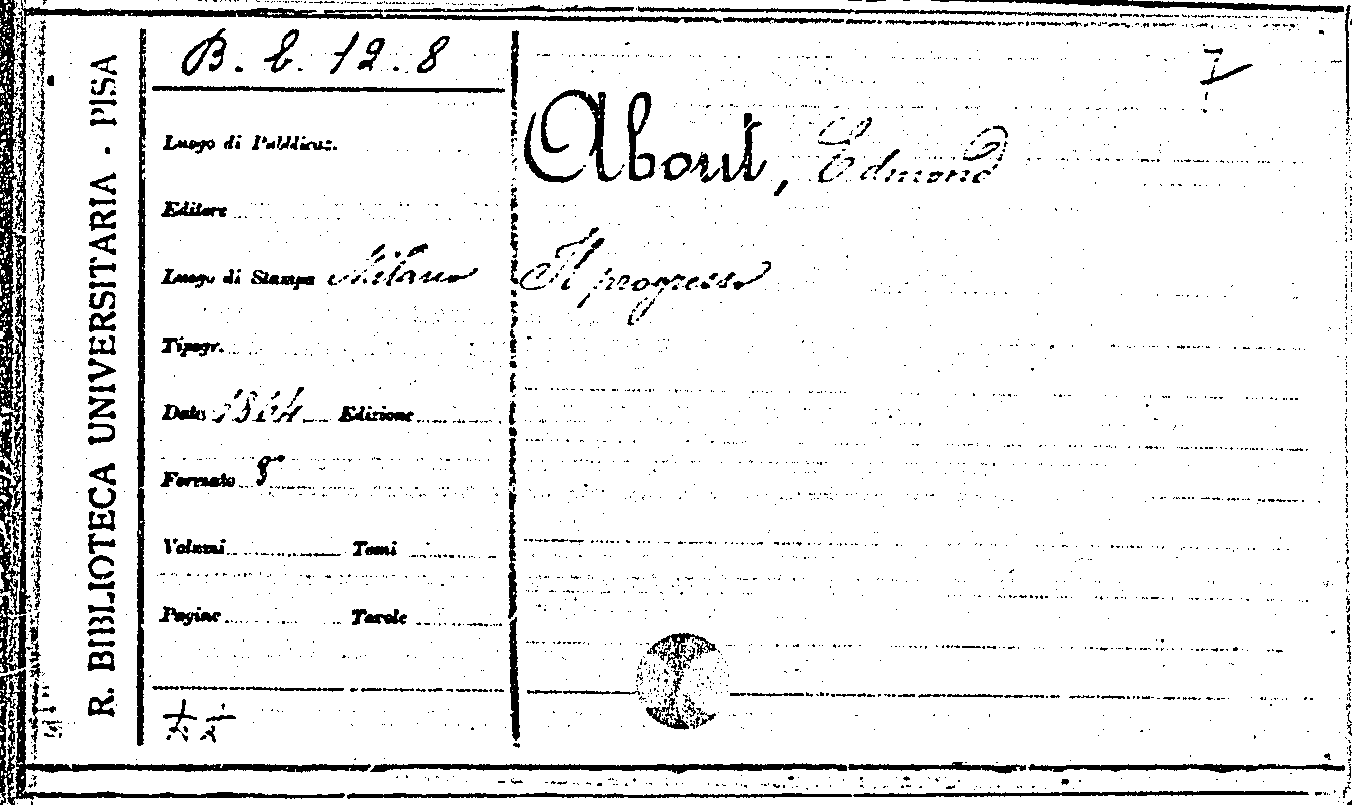 R. BIBLIOTECA UNIVERSITARIA - PISA
B. b. 12. 8
Luogo di Pubblicaz.
Editore
Luogo di Stampa Milano
Tipogr.
Data Edizione
Formato 8°
Volumi Tomi
Pagine Tavole
About, Edmond
Il progresso